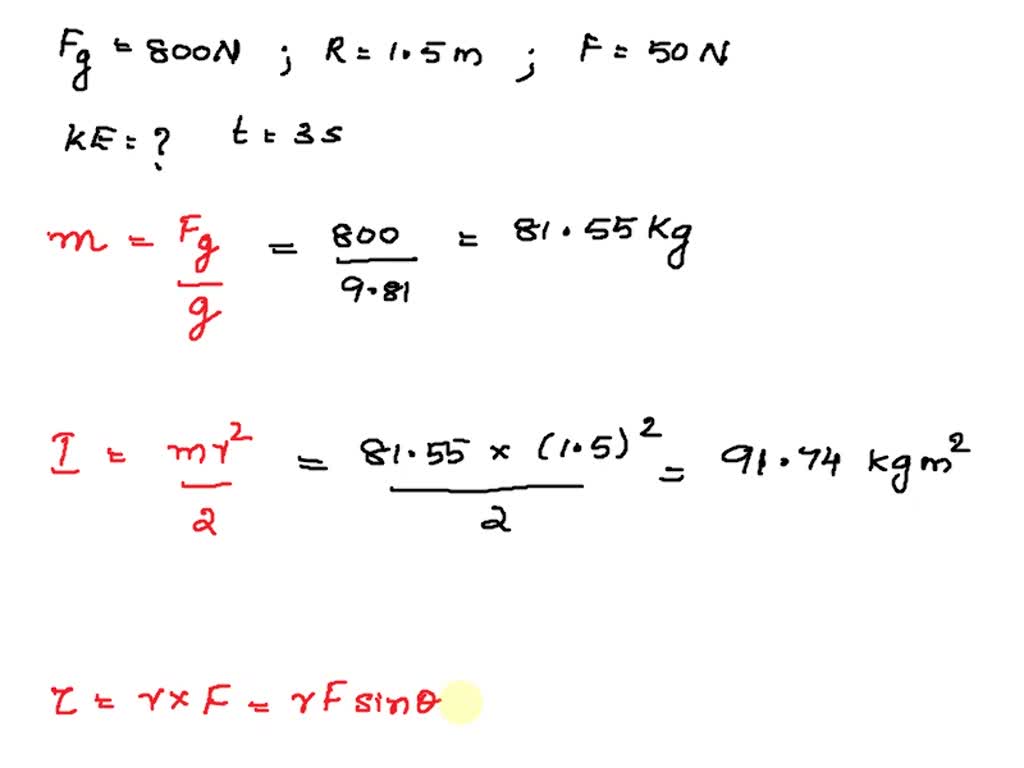 Fg = 800N ; R = 1.5 m ; F = 50 N
KE = ? t = 3s
m = Fg/g = 800/9.81 = 81.55 Kg
I = mr²/2 = 81.55 × (1.5)²/2 = 91.74 kgm²
τ = r × F = rF sinθ